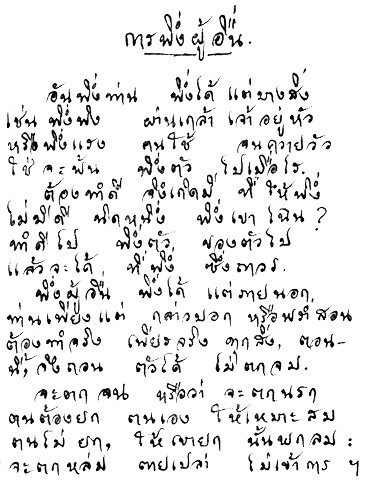 การพึ่งผู้อื่น.
อันพึ่งท่าน พึ่งได้ แต่บางสิ่ง
เช่นพึ่งพิง ผ่านเกล้า เจ้าอยู่หัว
หรือพึ่งแรง คนใช้ จนควายวัว
ใช่จะพ้น พึ่งตัว ไปเมื่อไร.
ต้องทำดี จึงเกิดมี ที่ให้พึ่ง
ไม่มีดี นิดหนึ่ง พึ่งเขาไฉน?
ทำดีไป พึ่งตัว ของตัวไป
แล้วจะได้ ที่พึ่ง ซึ่งถาวร.
พึ่งผู้อื่น พึ่งได้ แต่ภายนอก,
ท่านเพียงแต่ กล่าวบอก หรือพร่ำสอน
ต้องทำจริง เพียรจริง ทุกสิ่ง, ตอน-
นี้, จึงถอน ตัวได้ ไม่ตกจม.
จะตกจน หรือว่า จะตกนรก
ตนต้องยก ตนเอง ให้เหมาะสม
ตนไม่ยก, ให้เขายก นั้นพกลม:
จะตกหล่ม ตายเปล่า ไม่เข้าการ ฯ